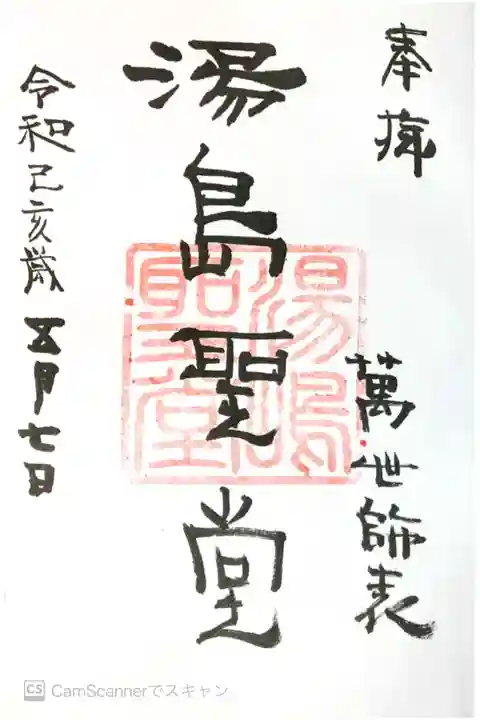 奉拜
萬世師表
湯島聖堂
湯島聖堂
令和己亥歳 五月七日
CS CamScannerでスキャン